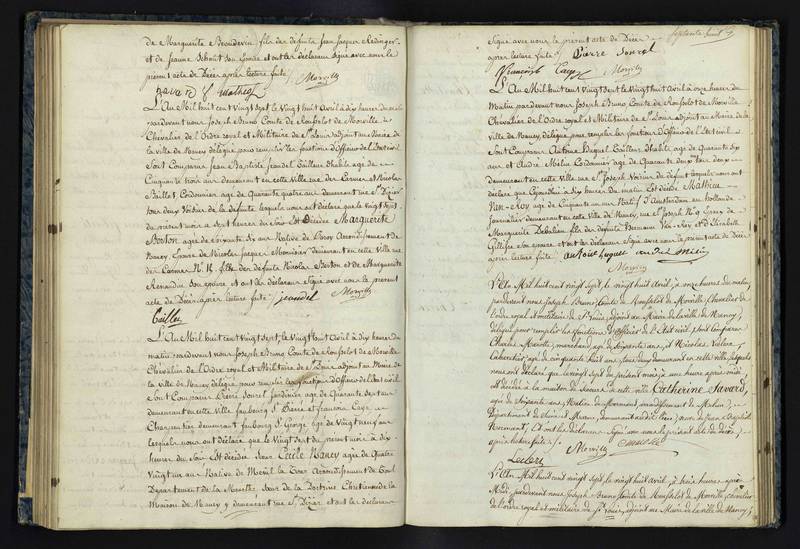 de Marguerite Beaudevin, fils des defunts Jean Jacques Redinger
et de Jeanne Schmit son épouse et ont les déclarans signé avec nous le
présent acte de Décès après lecture faite Morville
L'An Mil huit cent Vingt Sept le Vingt huit Avril à dix heures du matin
pardevant nous Joseph Bruno Comte de Rousselot de Morville
Chevalier de l'Ordre royal et Militaire de St Louis adjoint au Maire de
la ville de Nancy délégué pour remplir les fonctions d'Officier de l'Etat civil
Sont Comparus Jean Baptiste Jeandel Tailleur d'habits agé de
Cinquante trois ans demeurant en cette Ville rue des Carmes et Nicolas
Taillet, Cordonnier agé de Quarante quatre ans demeurant rue St Dizier
tous deux Voisins de la défunte lesquels nous ont déclaré que le Vingt Sept
du présent mois à sept heures du soir Est Décédée Marguerite
Berton agée de soixante dix ans Native de Arrondissement de
Nancy, Epouse de Nicolas Jacques demeurant en cette Ville rue
des Carmes N° 14 fille des défunts Nicolas Berton et de Marguerite
Renaudin son épouse et ont les déclarans Signé avec nous le présent
acte de Décès après lecture faite Jeandel Morville
L'An Mil huit cent Vingt Sept, le Vingt huit Avril à dix heures du
matin pardevant nous Joseph Bruno Comte de Rousselot de Morville
Chevalier de l'Ordre royal et Militaire de St Louis adjoint au Maire de
la ville de Nancy délégué, pour remplir les fonctions d'Officier de l'Etat civil
Sont Comparus Pierre Sourel Jardinier agé de Quarante sept ans
demeurant en cette Ville faubourg St Pierre et françois Caye
Charpentier demeurant faubourg St George agé de Vingt neuf ans
lesquels nous ont déclaré que le Vingt Sept du présent mois à dix
heures du soir Est décédée Sœur Cécile Nancy agée de Quatre
Vingt un ans Native de Mesnil la Tour Arrondissement de Toul
Département de la Meurthe Sœur de la Doctrine Chrétienne de la
Maison de Nancy y demeurant rue St Dizier et ont les déclarans
Septante huit
Signé avec nous le présent acte de Décès
après lecture faite Pierre Sourel
françois Caye Morville
L'An Mil huit cent Vingt Sept le Vingt huit Avril à onze heures du
Matin pardevant nous Joseph Bruno Comte de Rousselot de Morville
Chevalier de l'Ordre royal et Militaire de St Louis adjoint au Maire de la
Ville de Nancy délégué pour remplir les fonctions d'Officier de l'Etat civil
Sont Comparus Antoine Huguet Tailleur d'habits agé de Quarante dix
ans et André Melin Cordonnier agé de Quarante deux ans tous deux
demeurant en cette Ville rue St Joseph Voisins du défunt lesquels nous ont
déclaré que Aujourd'hui à dix heures du matin Est décédé Mathieu
Van-Roy agé de Cinquante un ans Natif d'Amsterdam en hollande
Journalier demeurant en cette Ville de Nancy, rue St Joseph N° 9 Epoux de
Marguerite fils des défunts Hermann Van-Roy et d'Elisabeth
son épouse et ont les déclarans Signé avec nous le présent acte de Décès
après lecture faite antoine huguet andré melin
Morville
L'An Mil huit cent vingt sept, le vingt huit avril, à onze heures du matin,
pardevant nous Joseph Bruno Comte de Rousselot de Morville, Chevalier de
l'ordre royal et militaire de St Louis, adjoint au Maire de la ville de Nancy,
délégué pour remplir les fonctions d'officier de l'Etat civil, sont Comparus
Charles Marote, marchand, agé de soixante ans, et Nicolas
Cabaretier, agé de cinquante huit ans, tous deux demeurant en cette ville, lesquels
nous ont déclaré que le vingt sept du présent mois, à une heure après midi,
est décédée à la maison de Secours de cette ville Catherine Savard,
agée de Soixante ans, Native de arrondissement de Melun,
Département de Seine et Marne, demeurant
et ont les déclarans Signé avec nous le présent acte de décès,
après lecture faite. Morville
Leclerc
L'An Mil huit cent vingt sept, le vingt huit avril, à trois heures après
Midi, pardevant nous Joseph Bruno Comte de Rousselot de Morville, chevalier
de l'ordre royal et militaire de St Louis, adjoint au Maire de la ville de Nancy,